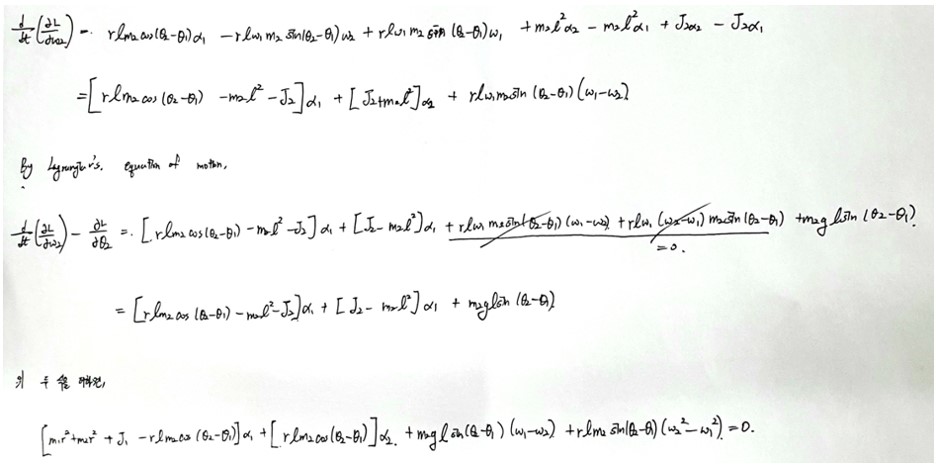 d/dt(∂L/∂ω₂) = rlm₂cos(θ₂-θ₁)α₁ - rlω₁m₂sin(θ₂-θ₁)ω₂ + rlω₁m₂sin(θ₂-θ₁)ω₁ + m₂l²α₂ - m₂l²α₁ + J₂α₂ - J₂α₁
= [rlm₂cos(θ₂-θ₁) - m₂l² - J₂]α₁ + [J₂+m₂l²]α₂ + rlω₁m₂sin(θ₂-θ₁)(ω₁-ω₂)
By Lagrange's equation of motion,
d/dt(∂L/∂ω₂) - ∂L/∂θ₂ = [rlm₂cos(θ₂-θ₁) - m₂l² - J₂]α₁ + [J₂ - m₂l²]α₁ + rlω₁m₂sin(θ₂-θ₁)(ω₁-ω₂) + rlω₁(ω₂-ω₁)m₂sin(θ₂-θ₁) + m₂glsin(θ₂-θ₁)
=0.
= [rlm₂cos(θ₂-θ₁) - m₂l² - J₂]α₁ + [J₂ - m₂l²]α₁ + m₂glsin(θ₂-θ₁)
위 두 식을 더하면,
[m₁r²+m₂r² + J₁ - rlm₂cos(θ₂-θ₁)]α₁ + [rlm₂cos(θ₂-θ₁)]α₂ + m₂glsin(θ₂-θ₁)(ω₁-ω₂) + rlm₂sin(θ₂-θ₁)(ω₂²-ω₁²) = 0.